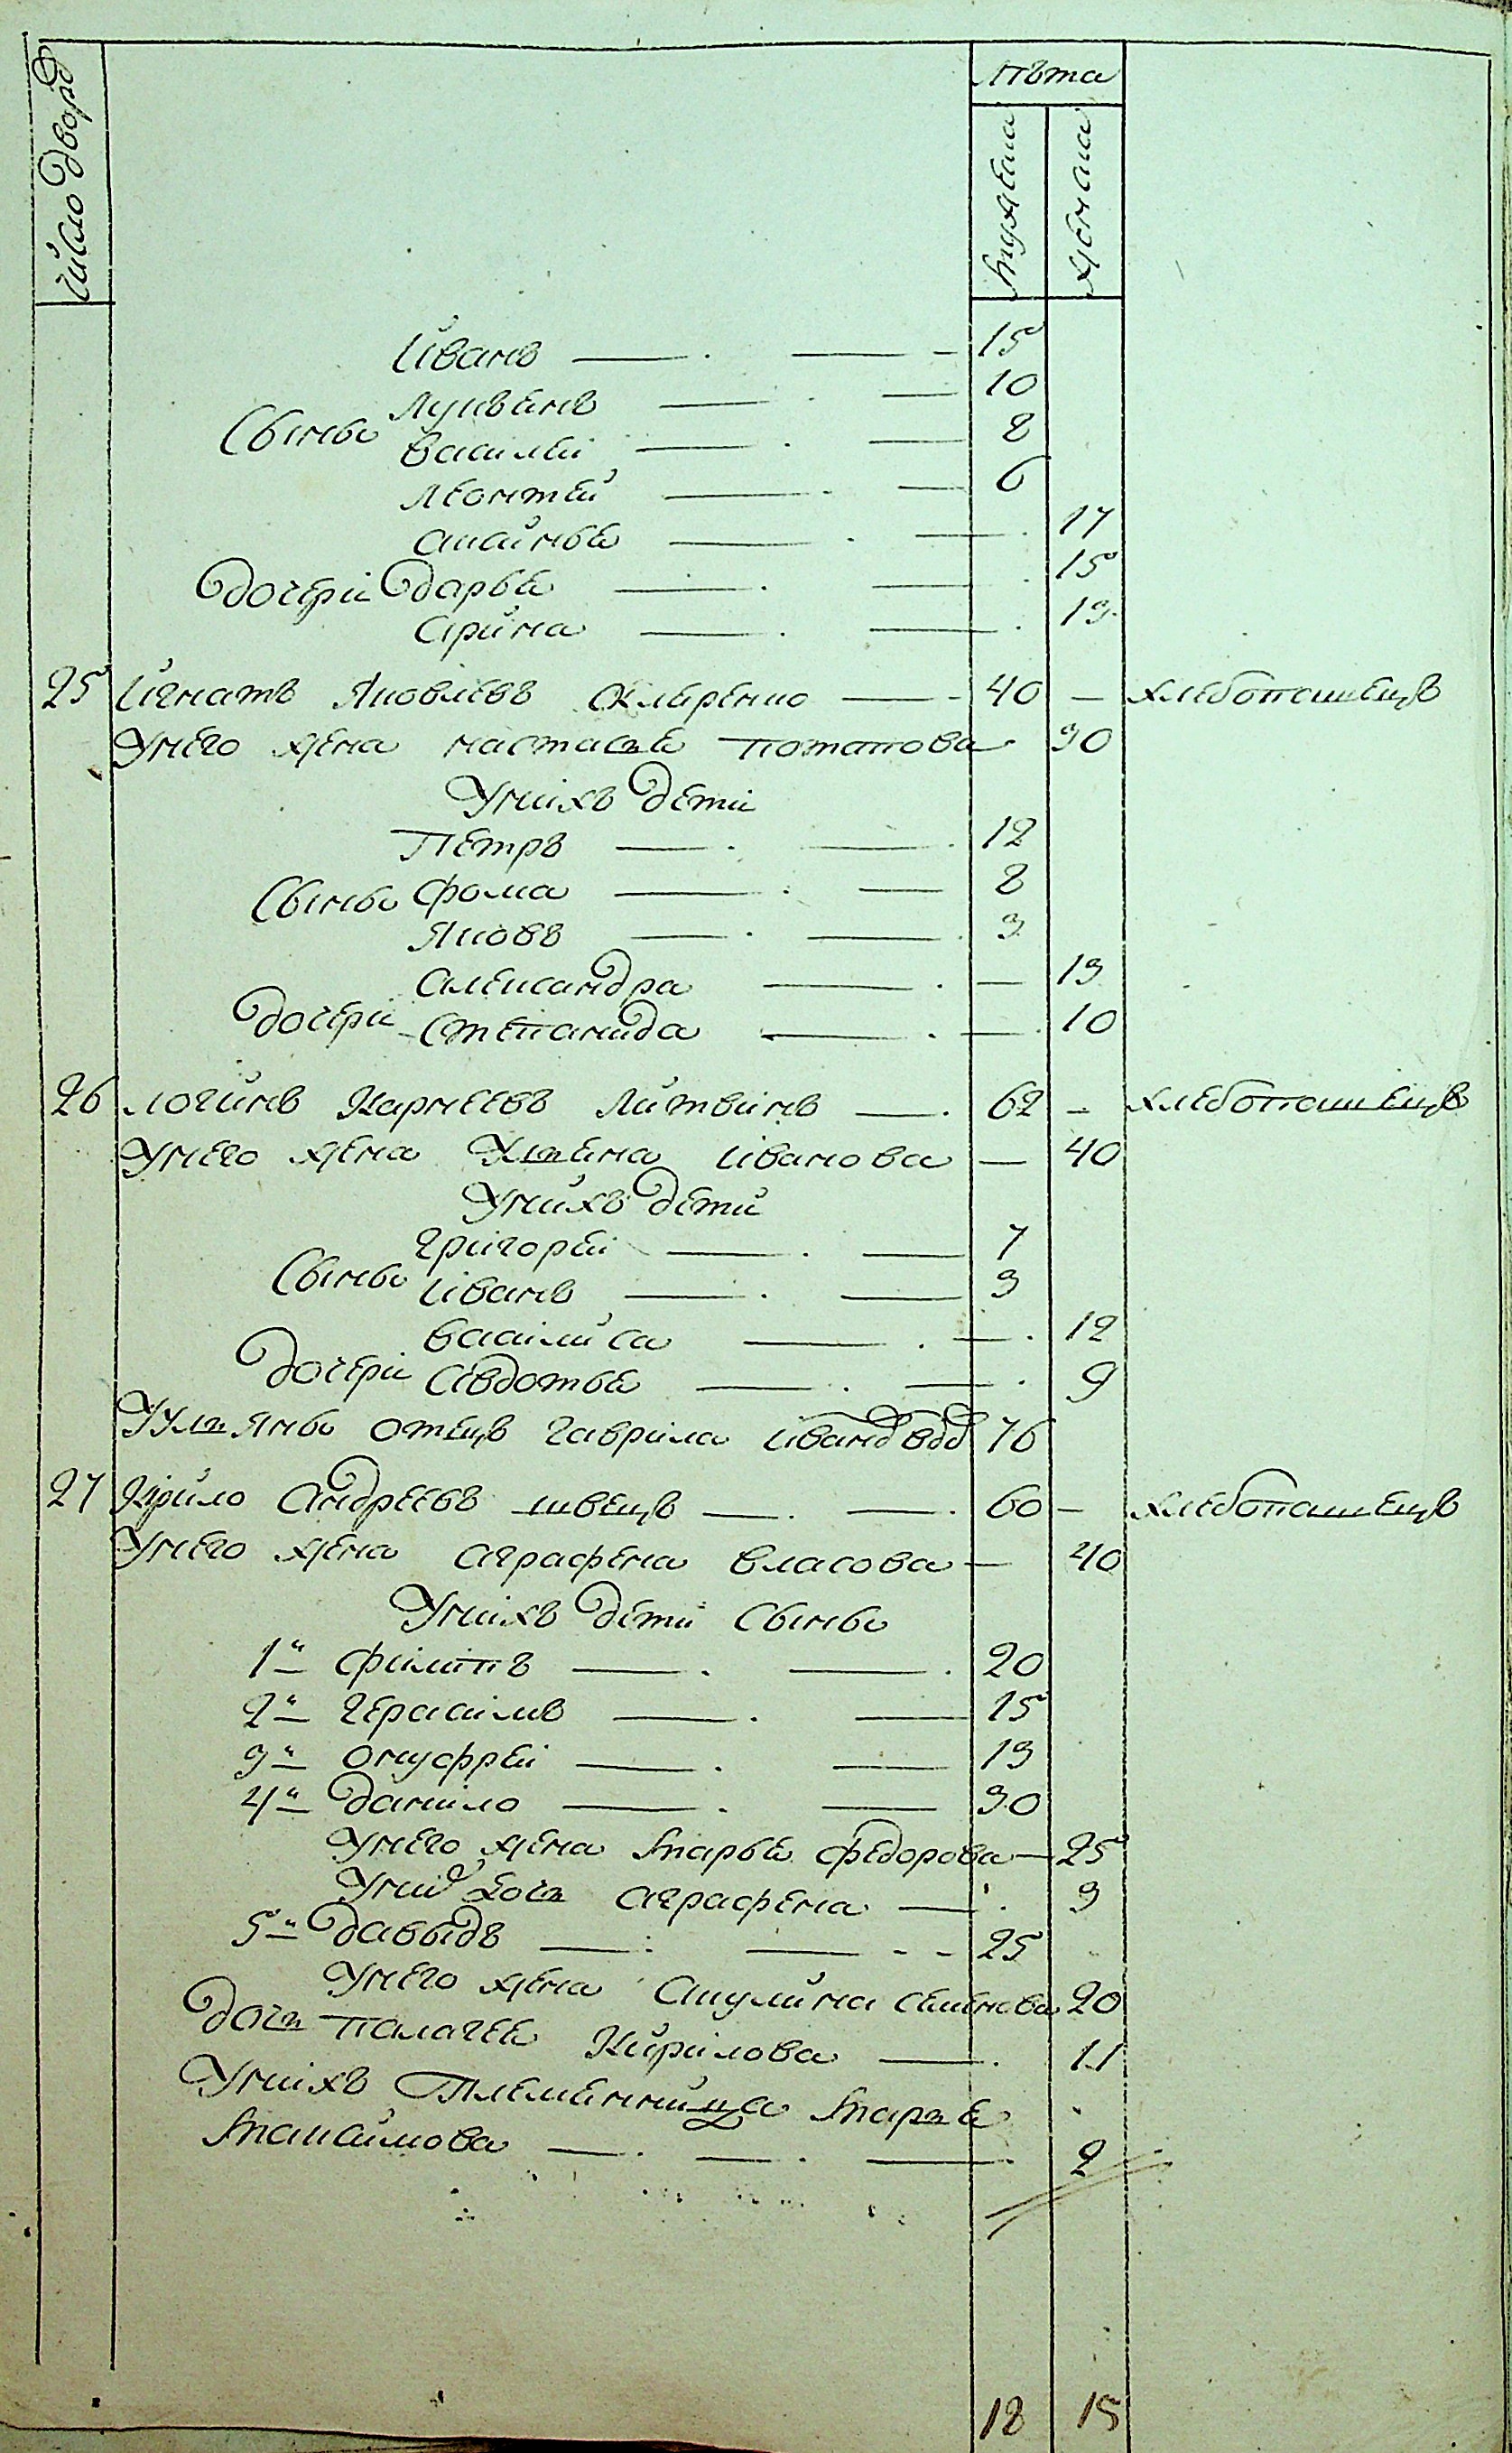 число дворовъ
лѣта
мужеска
женска
Иванъ — 15
Лукъянъ — 10
Сыновья
Василей — 8
Леонтей — 6
Аксинья — 17
Дочери Дарья — 15
Арина — 13
25 Игнатъ Яковлевъ — 40 — хлебопашецъ
У него жена Настасья Потапова 30
У нихъ дети
Петръ — 12
Сыновья Фома — 8
Яковъ — 3
Александра — 13
Дочери Степанида — 10
26 Логинъ Карнеевъ Литвинъ — 62 — хлебопашецъ
У него жена Ульяна Иванова — 40
У нихъ дети
Григорей — 7
Сыновья Иванъ — 3
Василиса — 12
Дочери Авдотья — 9
У Ульяны отецъ Гаврила Ивановъ вдовъ 76
27 Кирило Андреевъ Швецъ — 60 — хлебопашецъ
У него жена Аграфена Власова — 40
У нихъ дети Сыновья
1й Филипъ — 20
2й Герасимъ — 15
3й Онуфрей — 13
4й Данило — 30
У него жена Марья Федорова — 25
У них дочь Аграфена — 3
5й Давыдъ — 25
У него жена Акулина Семенова 20
Дочь Палагея Кирилова — 11
У нихъ Племенница Марья
Максимова — 2
18 15